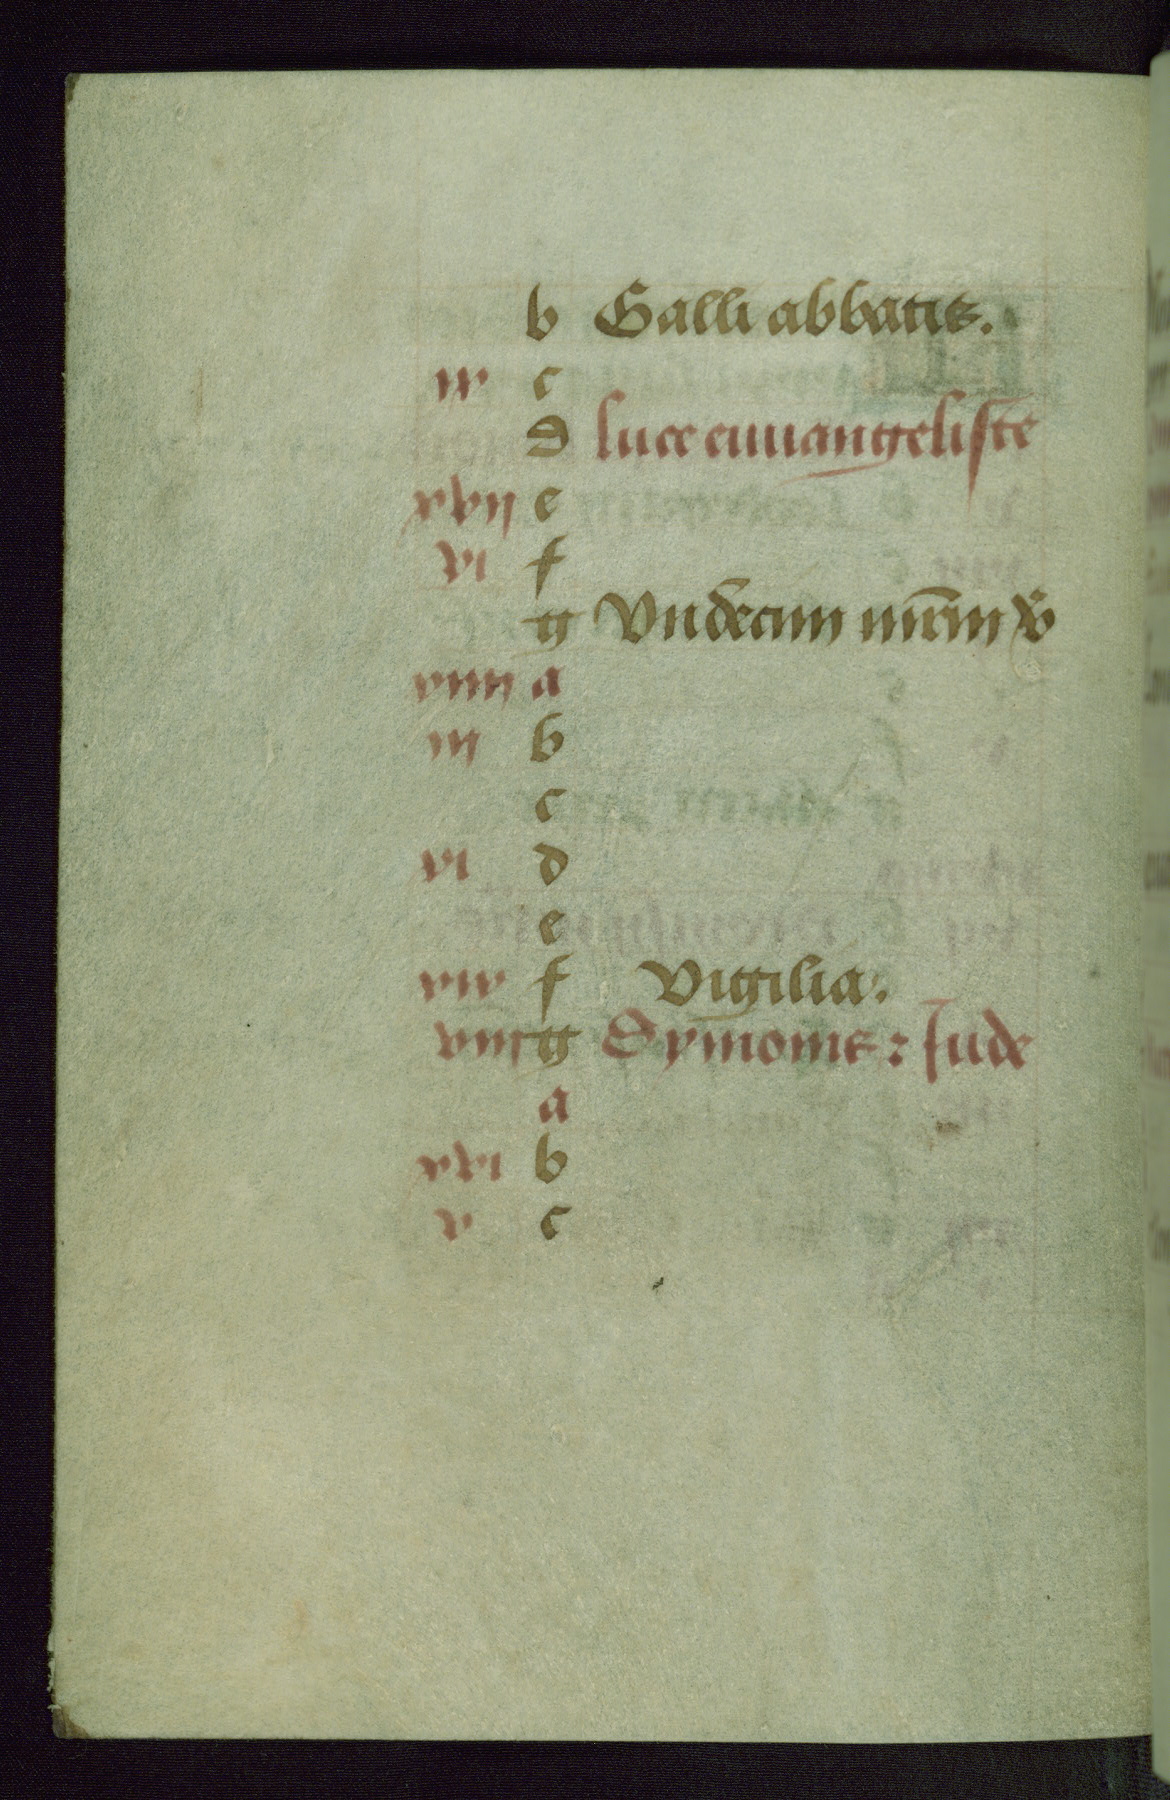 b Galli abbatis.
iv c
d luce euuangeliste
xvij e
vi f
g Vndecim mr̄m v̄
viiij a
iij b
c
vi d
e
xiv f Vigilia.
viij g Symonis ⁊ Jude
a
xvi b
v c